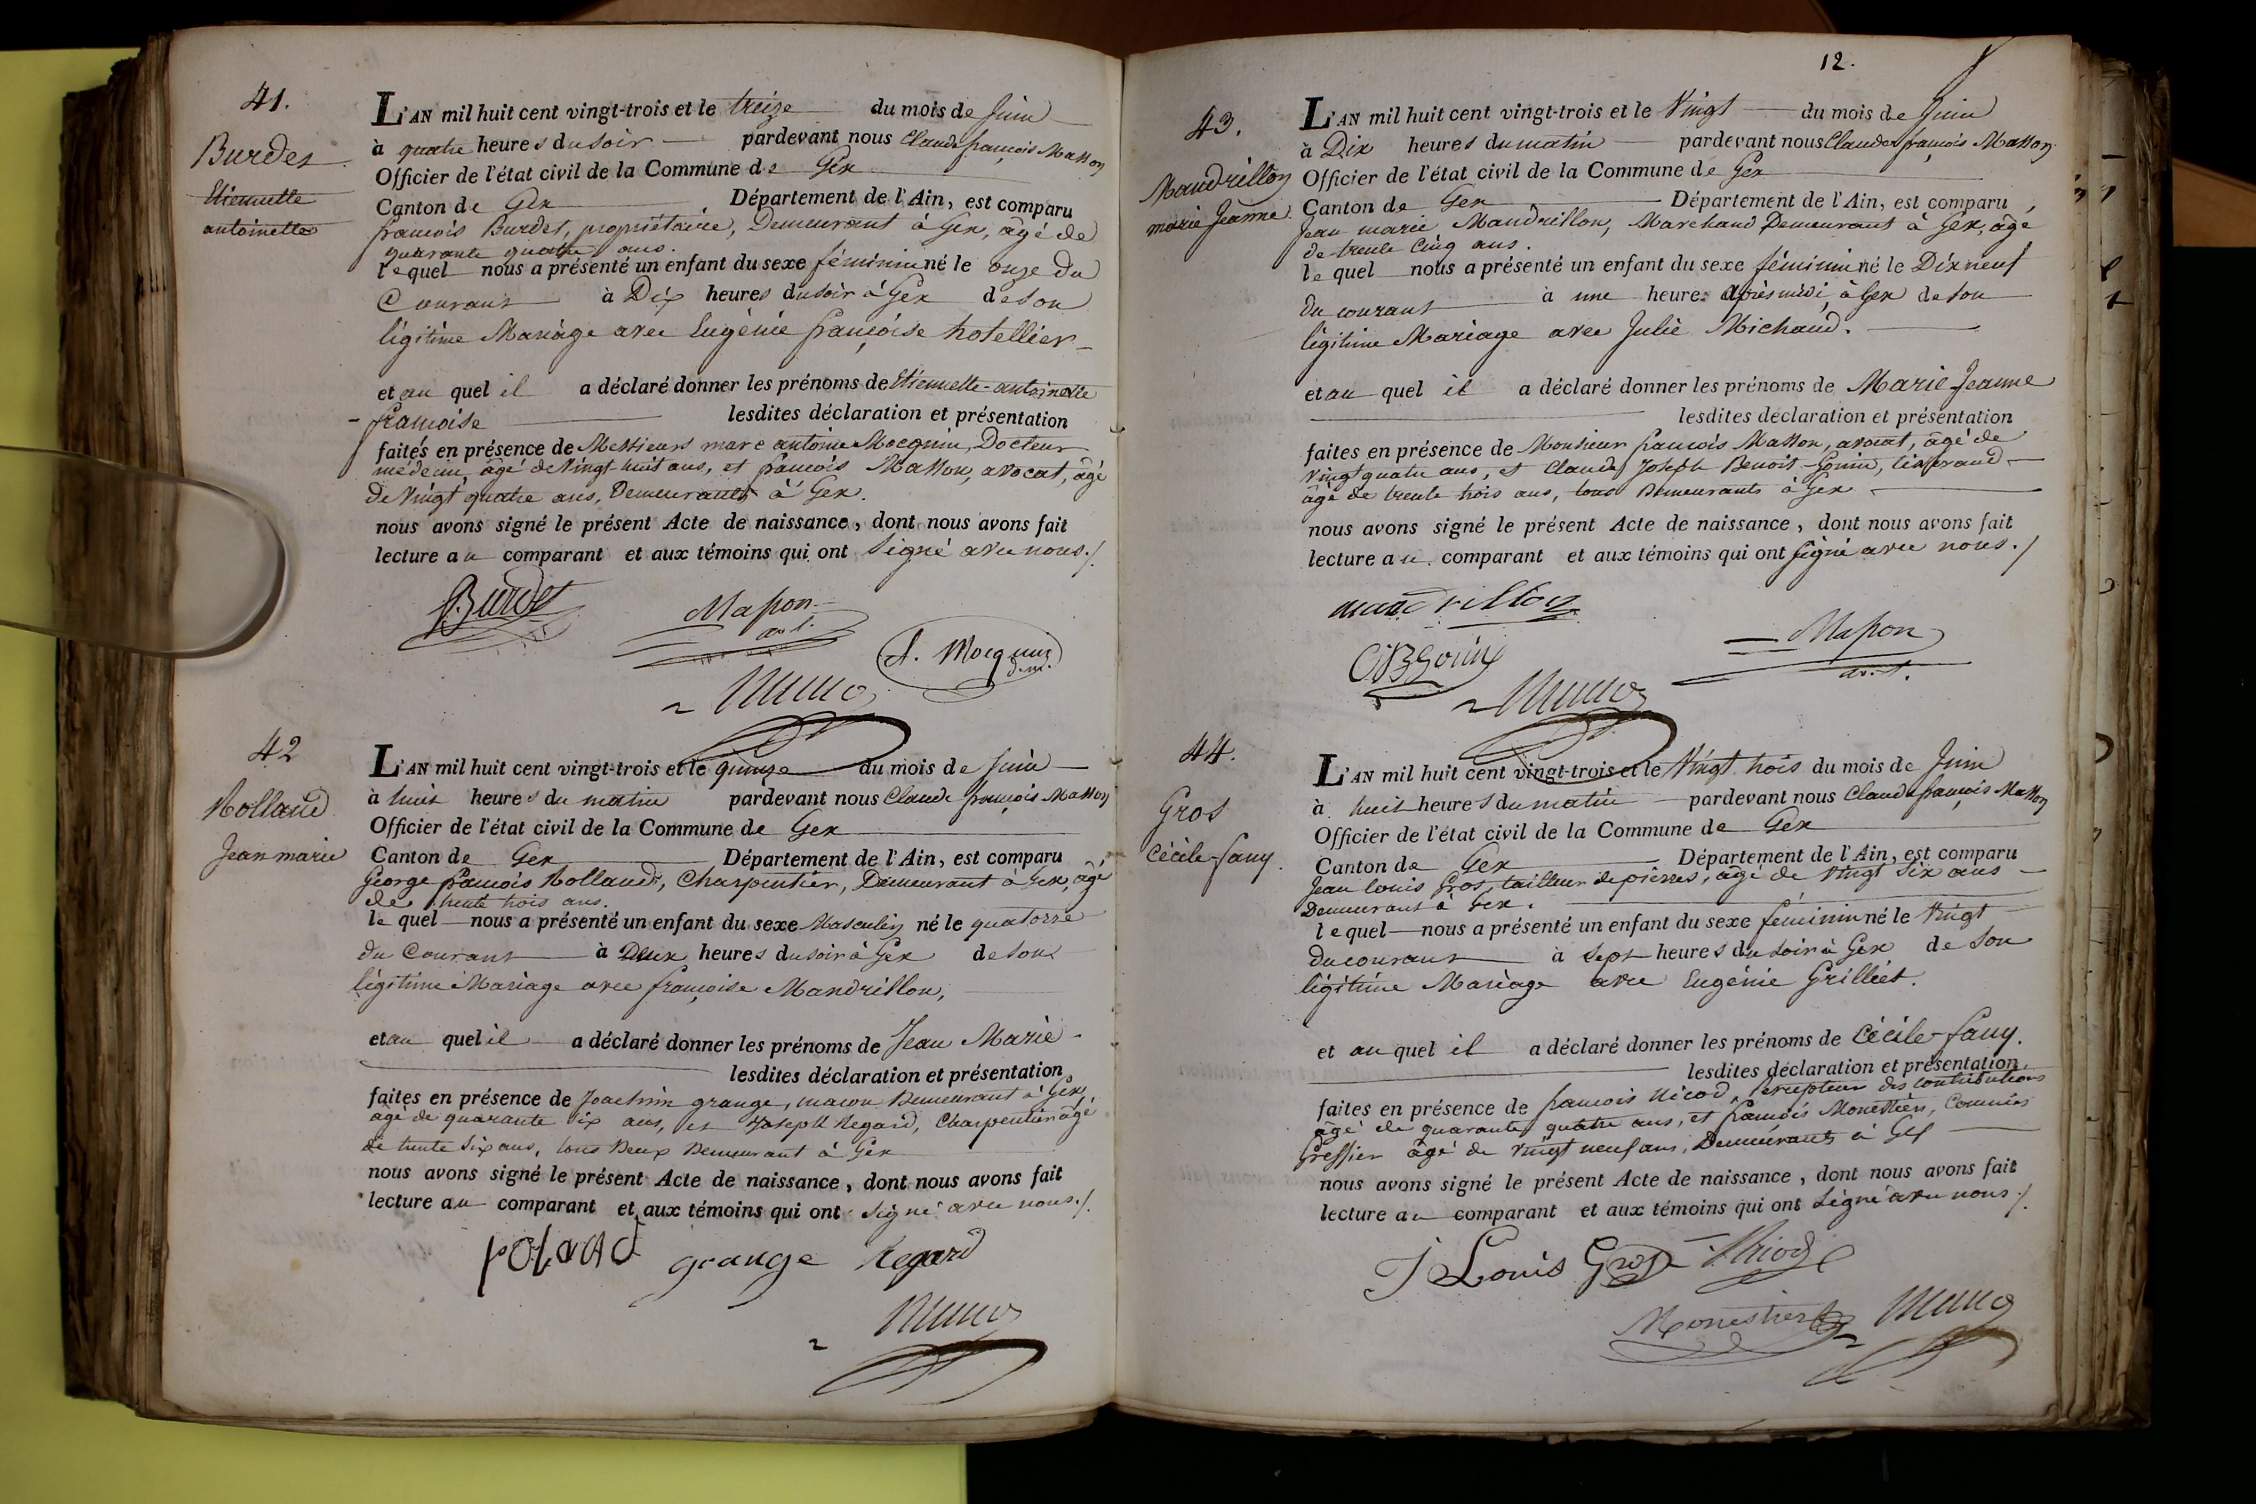 41.
Burdet
Etiennette
antoinette
L'AN mil huit cent vingt-trois et le treize du mois de Juin
à quatre heures du soir pardevant nous Claude françois Masson
Officier de l'état civil de la Commune de Gex
Canton de Gex Département de l'Ain, est comparu
françois Burdet, propriétaire, Demeurant à Gex, âgé de
quarante quatre ans.
lequel nous a présenté un enfant du sexe féminin né le onze du
Courant à Dix heures du soir à Gex de son
légitime Mariage avec Eugénie françoise hotellier
et au quel il a déclaré donner les prénoms de Etiennette-antoinette
françoise lesdites déclaration et présentation
faites en présence de Messieurs marc antoine Mocquin, Docteur
médecin, âgé de vingt huit ans, et françois Masson, avocat, âgé
de vingt quatre ans, Demeurants à Gex.
nous avons signé le présent Acte de naissance, dont nous avons fait
lecture au comparant et aux témoins qui ont signé avec nous./.
Burdet
Masson
av. t.
A. Mocquin
d. m.
42
Rolland
Jean marie
L'AN mil huit cent vingt-trois et le quinze du mois de Juin
à huit heures du matin pardevant nous Claude françois Masson
Officier de l'état civil de la Commune de Gex
Canton de Gex Département de l'Ain, est comparu
George françois Rolland, Charpentier, Demeurant à Gex, âgé
de trente trois ans.
lequel nous a présenté un enfant du sexe Masculin né le quatorze
du Courant à Deux heures du soir à Gex de son
légitime Mariage avec françoise Mandrillon,
et au quel il a déclaré donner les prénoms de Jean Marie
lesdites déclaration et présentation
faites en présence de Joachim grange, maçon Demeurant à Gex,
âgé de quarante six ans, et Joseph Regard, Charpentier âgé
de trente six ans, tous Deux Demeurant à Gex
nous avons signé le présent Acte de naissance, dont nous avons fait
lecture au comparant et aux témoins qui ont signé avec nous./.
roland grange Regard
12.
43.
Mandrillon
marie Jeanne.
L'AN mil huit cent vingt-trois et le Vingt du mois de Juin
à Dix heures du matin pardevant nous Claude françois Masson
Officier de l'état civil de la Commune de Gex
Canton de Gex Département de l'Ain, est comparu
Jean marie Mandrillon, Marchand Demeurant à Gex, âgé
de trente Cinq ans.
lequel nous a présenté un enfant du sexe féminin né le Dix neuf
du courant à une heure après midi, à Gex de son
légitime Mariage avec Julie Michaud.
et au quel il a déclaré donner les prénoms de Marie Jeanne
lesdites déclaration et présentation
faites en présence de Monsieur françois Masson, avocat, âgé de
vingt quatre ans, et Claude Joseph Benoit Gonin, tisserand
âgé de trente trois ans, tous Demeurants à Gex
nous avons signé le présent Acte de naissance, dont nous avons fait
lecture au comparant et aux témoins qui ont signé avec nous./
mandrillon
CJBGonin
Masson
av. t.
44.
Gros
Cécile-fany.
L'AN mil huit cent vingt-trois et le Vingt trois du mois de Juin
à huit heures du matin pardevant nous Claude françois Masson
Officier de l'état civil de la Commune de Gex
Canton de Gex Département de l'Ain, est comparu
Jean Louis Gros, tailleur de pierres, âgé de vingt six ans
Demeurant à Gex.
lequel nous a présenté un enfant du sexe féminin né le vingt
du courant à sept heures du soir à Gex de son
légitime Mariage avec Eugénie Grilliet.
et au quel il a déclaré donner les prénoms de Cécile-fany.
lesdites déclaration et présentation
faites en présence de françois Nicod, Percepteur des contributions
âgé de quarante quatre ans, et françois Monestier, Commis
Greffier âgé de vingt neuf ans, Demeurants à Gex
nous avons signé le présent Acte de naissance, dont nous avons fait
lecture au comparant et aux témoins qui ont signé avec nous./.
J Louis Gros Nicod
Monestier